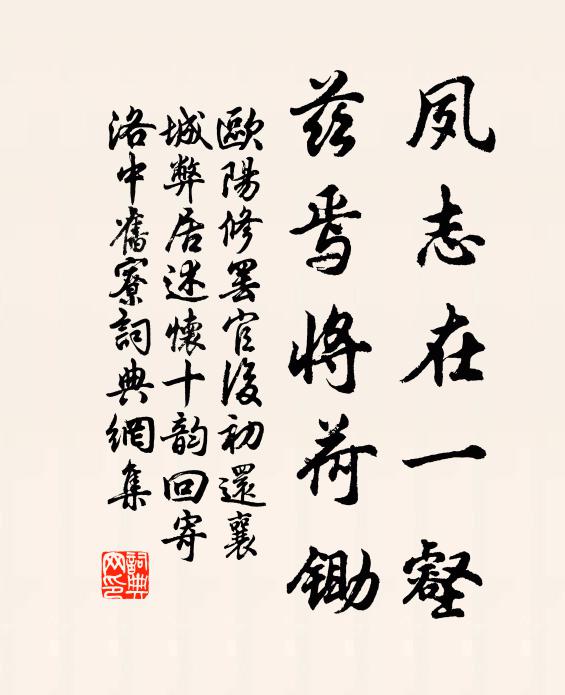 夙志在一壑
兹焉将荷鋤
歐陽修罷官後初還襄
城弊居述懷十韵回寄
洛中舊寮詞典網集
詞典网印